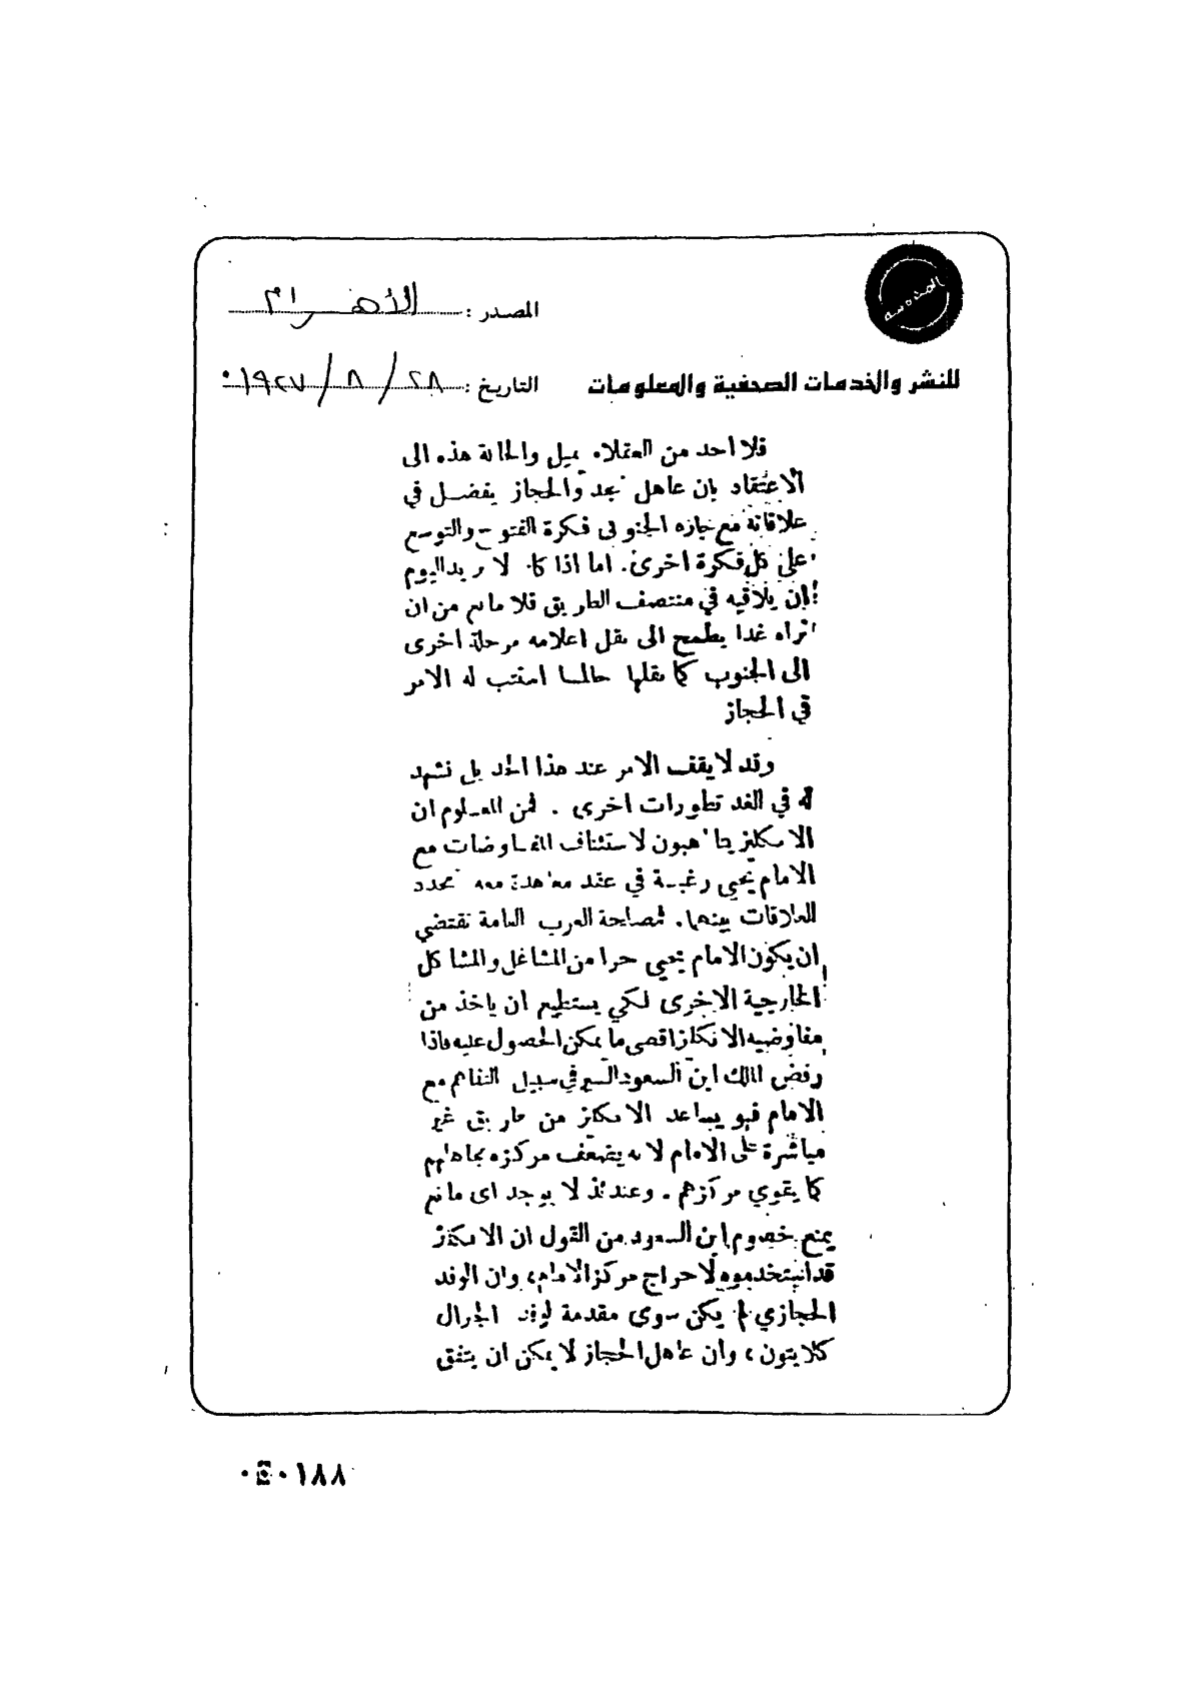 المصدر : الأهرام
للنشر والخدمات الصحفية والمعلومات
التاريخ : ٢٨ / ٨ / ١٩٢٧
فلا احد من العقلاء يميل والحالة هذه الى
الاعتقاد بان عاهل نجد والحجاز يفضل في
علاقاته مع جاره الجنوبى فكرة الفتوح والتوسع
على كل فكرة اخرى. اما اذا كان لا يريد اليوم
ان يلاقيه في منتصف الطريق فلا مانع من ان
نراه غدا يطمح الى نقل اعلامه مرحلة اخرى
الى الجنوب كما نقلها حالما استتب له الامر
في الحجاز
وقد لا يقف الامر عند هذا الحد بل نشهد
له في الغد تطورات اخرى . فمن المعلوم ان
الانكليز يتأهبون لاستئناف المفاوضات مع
الامام يحيى رغبة في عقد معاهدة معه تحدد
العلاقات بينهما. فمصلحة العرب العامة تقتضي
ان يكون الامام يحيى حرا من المشاغل والمشاكل
الخارجية الاخرى لكي يستطيع ان ياخذ من
مفاوضيه الانكليز اقصى ما يمكن الحصول عليه فاذا
رفض الملك ابن السعود السير في سبيل التفاهم مع
الامام فهو يساعد الانكليز من طريق غير
مباشرة على الامام لانه يضعف مركزه تجاههم
كما يقوي مركزهم . وعندئذ لا يوجد اى مانع
يمنع خصوم ابن السعود من القول ان الانكليز
قد استخدموه لاحراج مركز الامام، وان الوفد
الحجازي لم يكن سوى مقدمة لوفد الجنرال
كلايتون، وان عاهل الحجاز لا يمكن ان يتفق
١٨٨